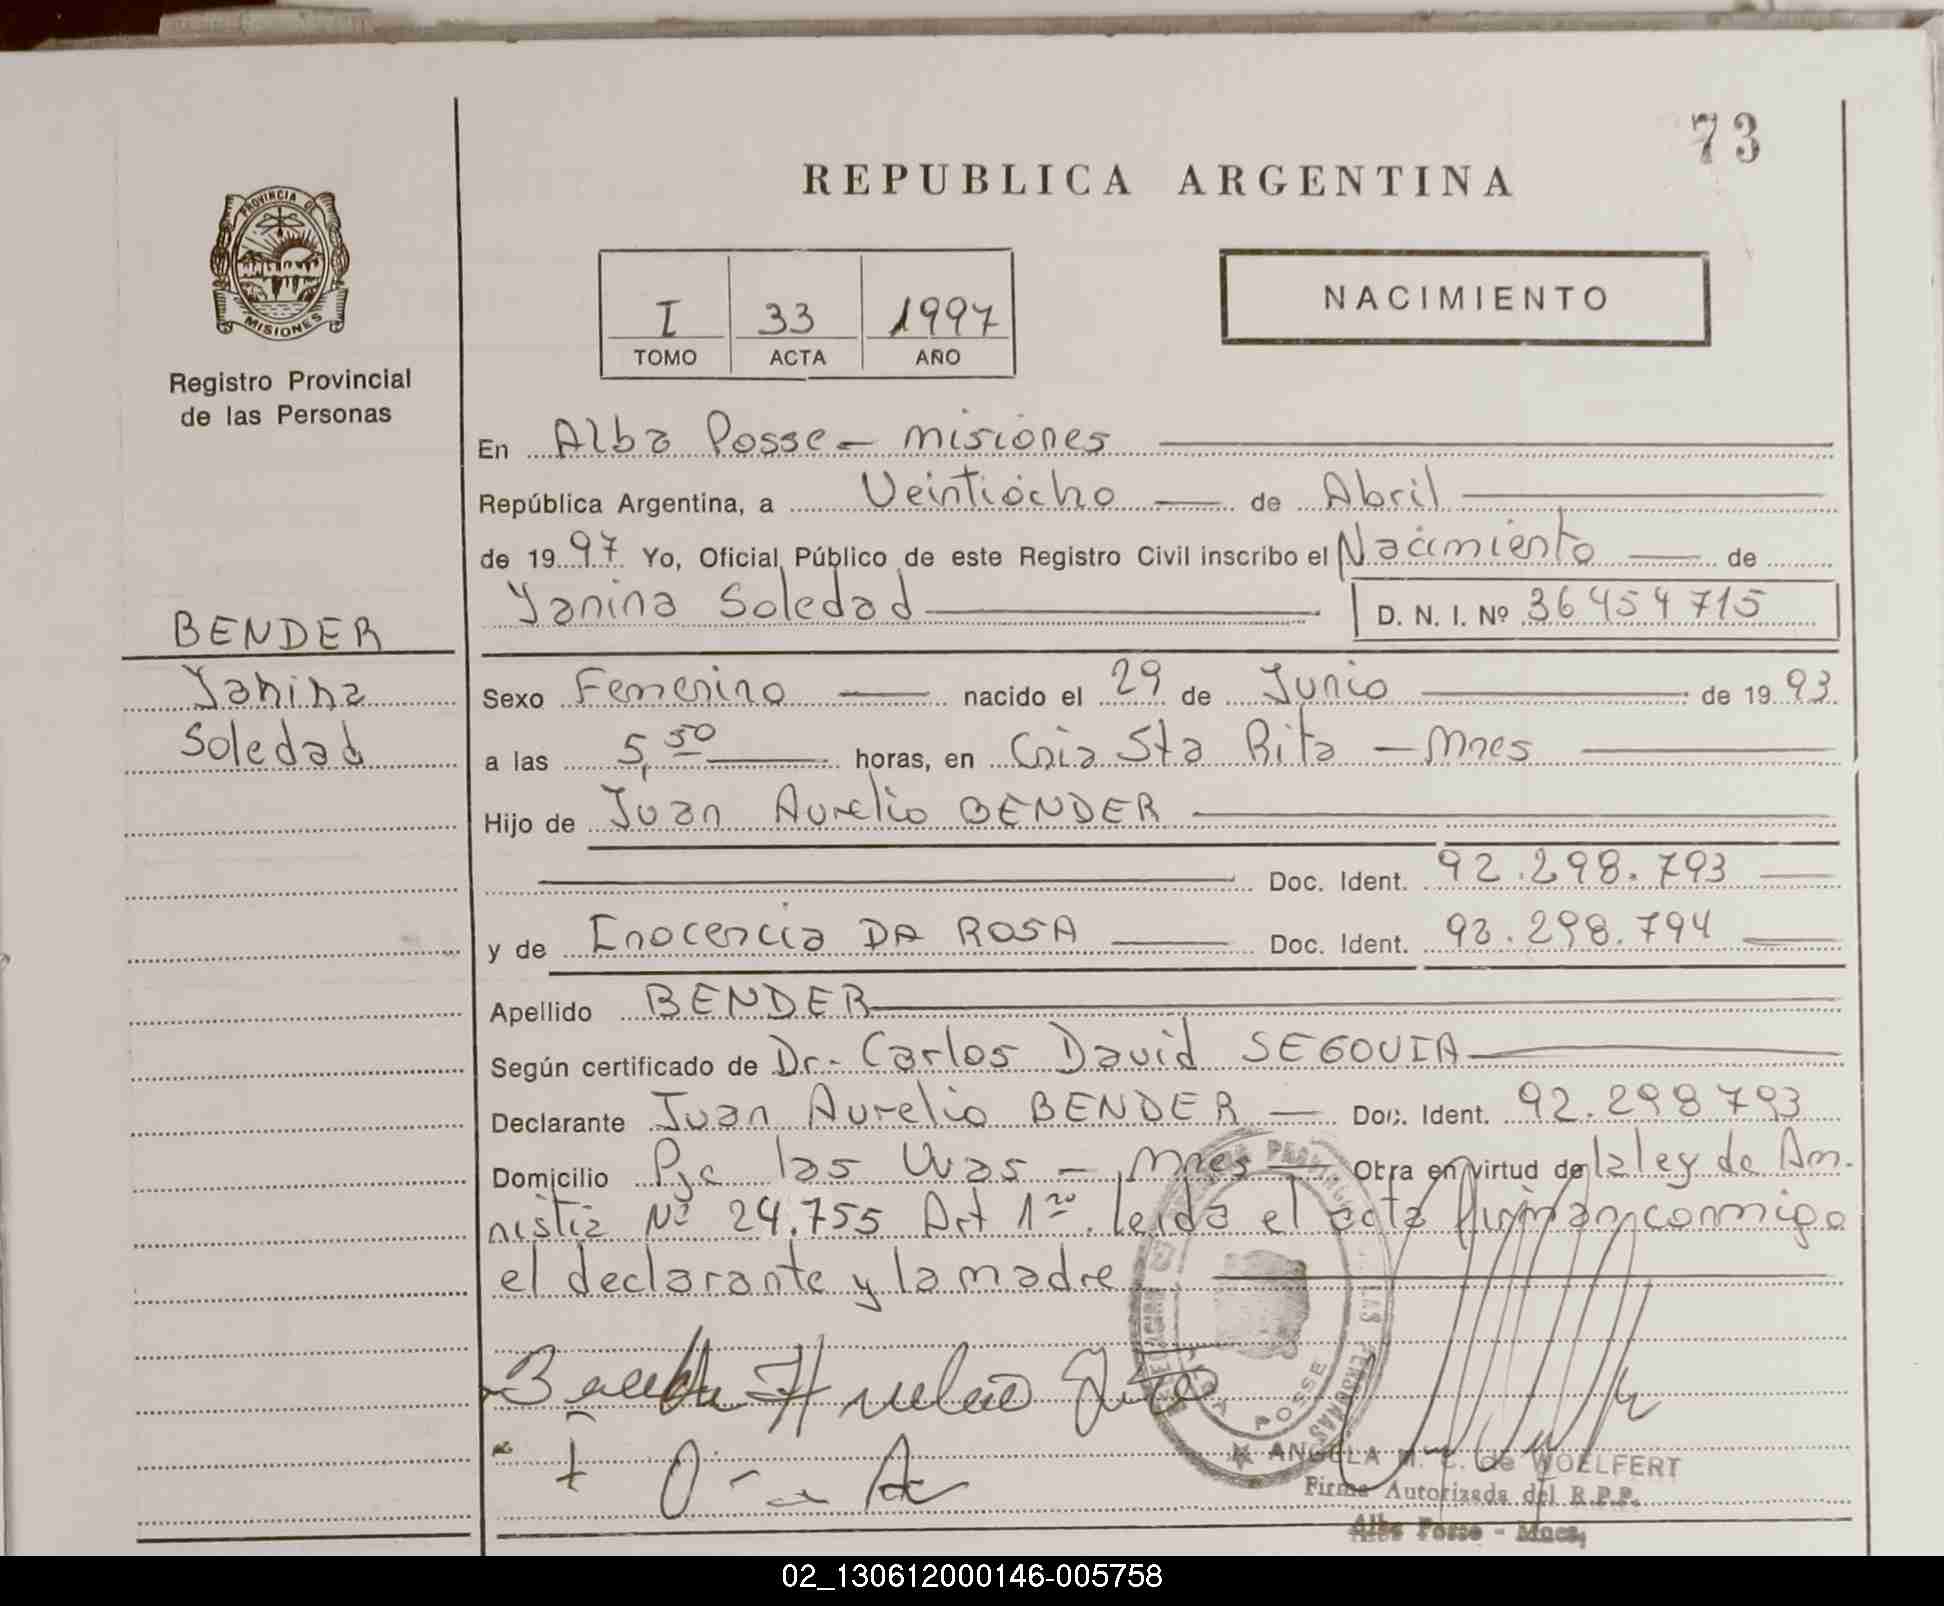 73
REPUBLICA ARGENTINA
PROVINCIA DE
MISIONES
Registro Provincial
de las Personas
I 33 1997
TOMO ACTA AÑO
NACIMIENTO
En Alba Posse - misiones
República Argentina, a Veintiocho de Abril
de 1997 Yo, Oficial Público de este Registro Civil inscribo el Nacimiento de
Yanina Soledad D. N. I. Nº 36454715
BENDER
Yanina
Soledad
Sexo Femenino nacido el 29 de Junio de 1993
a las 5,50 horas, en Cnia Sta Rita - Mnes
Hijo de Juan Aurelio BENDER
Doc. Ident. 92.298.793
y de Inocencia DA ROSA Doc. Ident. 92.298.794
Apellido BENDER
Según certificado de Dr. Carlos David SEGOVIA
Declarante Juan Aurelio BENDER Doc. Ident. 92.298793
Domicilio Pje las Uvas - Mnes Obra en virtud de la ley de Am-
nistia Nº 24.755 Art 1ro. leida el acta firman conmigo
el declarante y la madre
ALBA POSSE
ANGELA M. C. de WOELFERT
Firma Autorizada del R.P.P.
Alba Posse - Mnes,
02_130612000146-005758